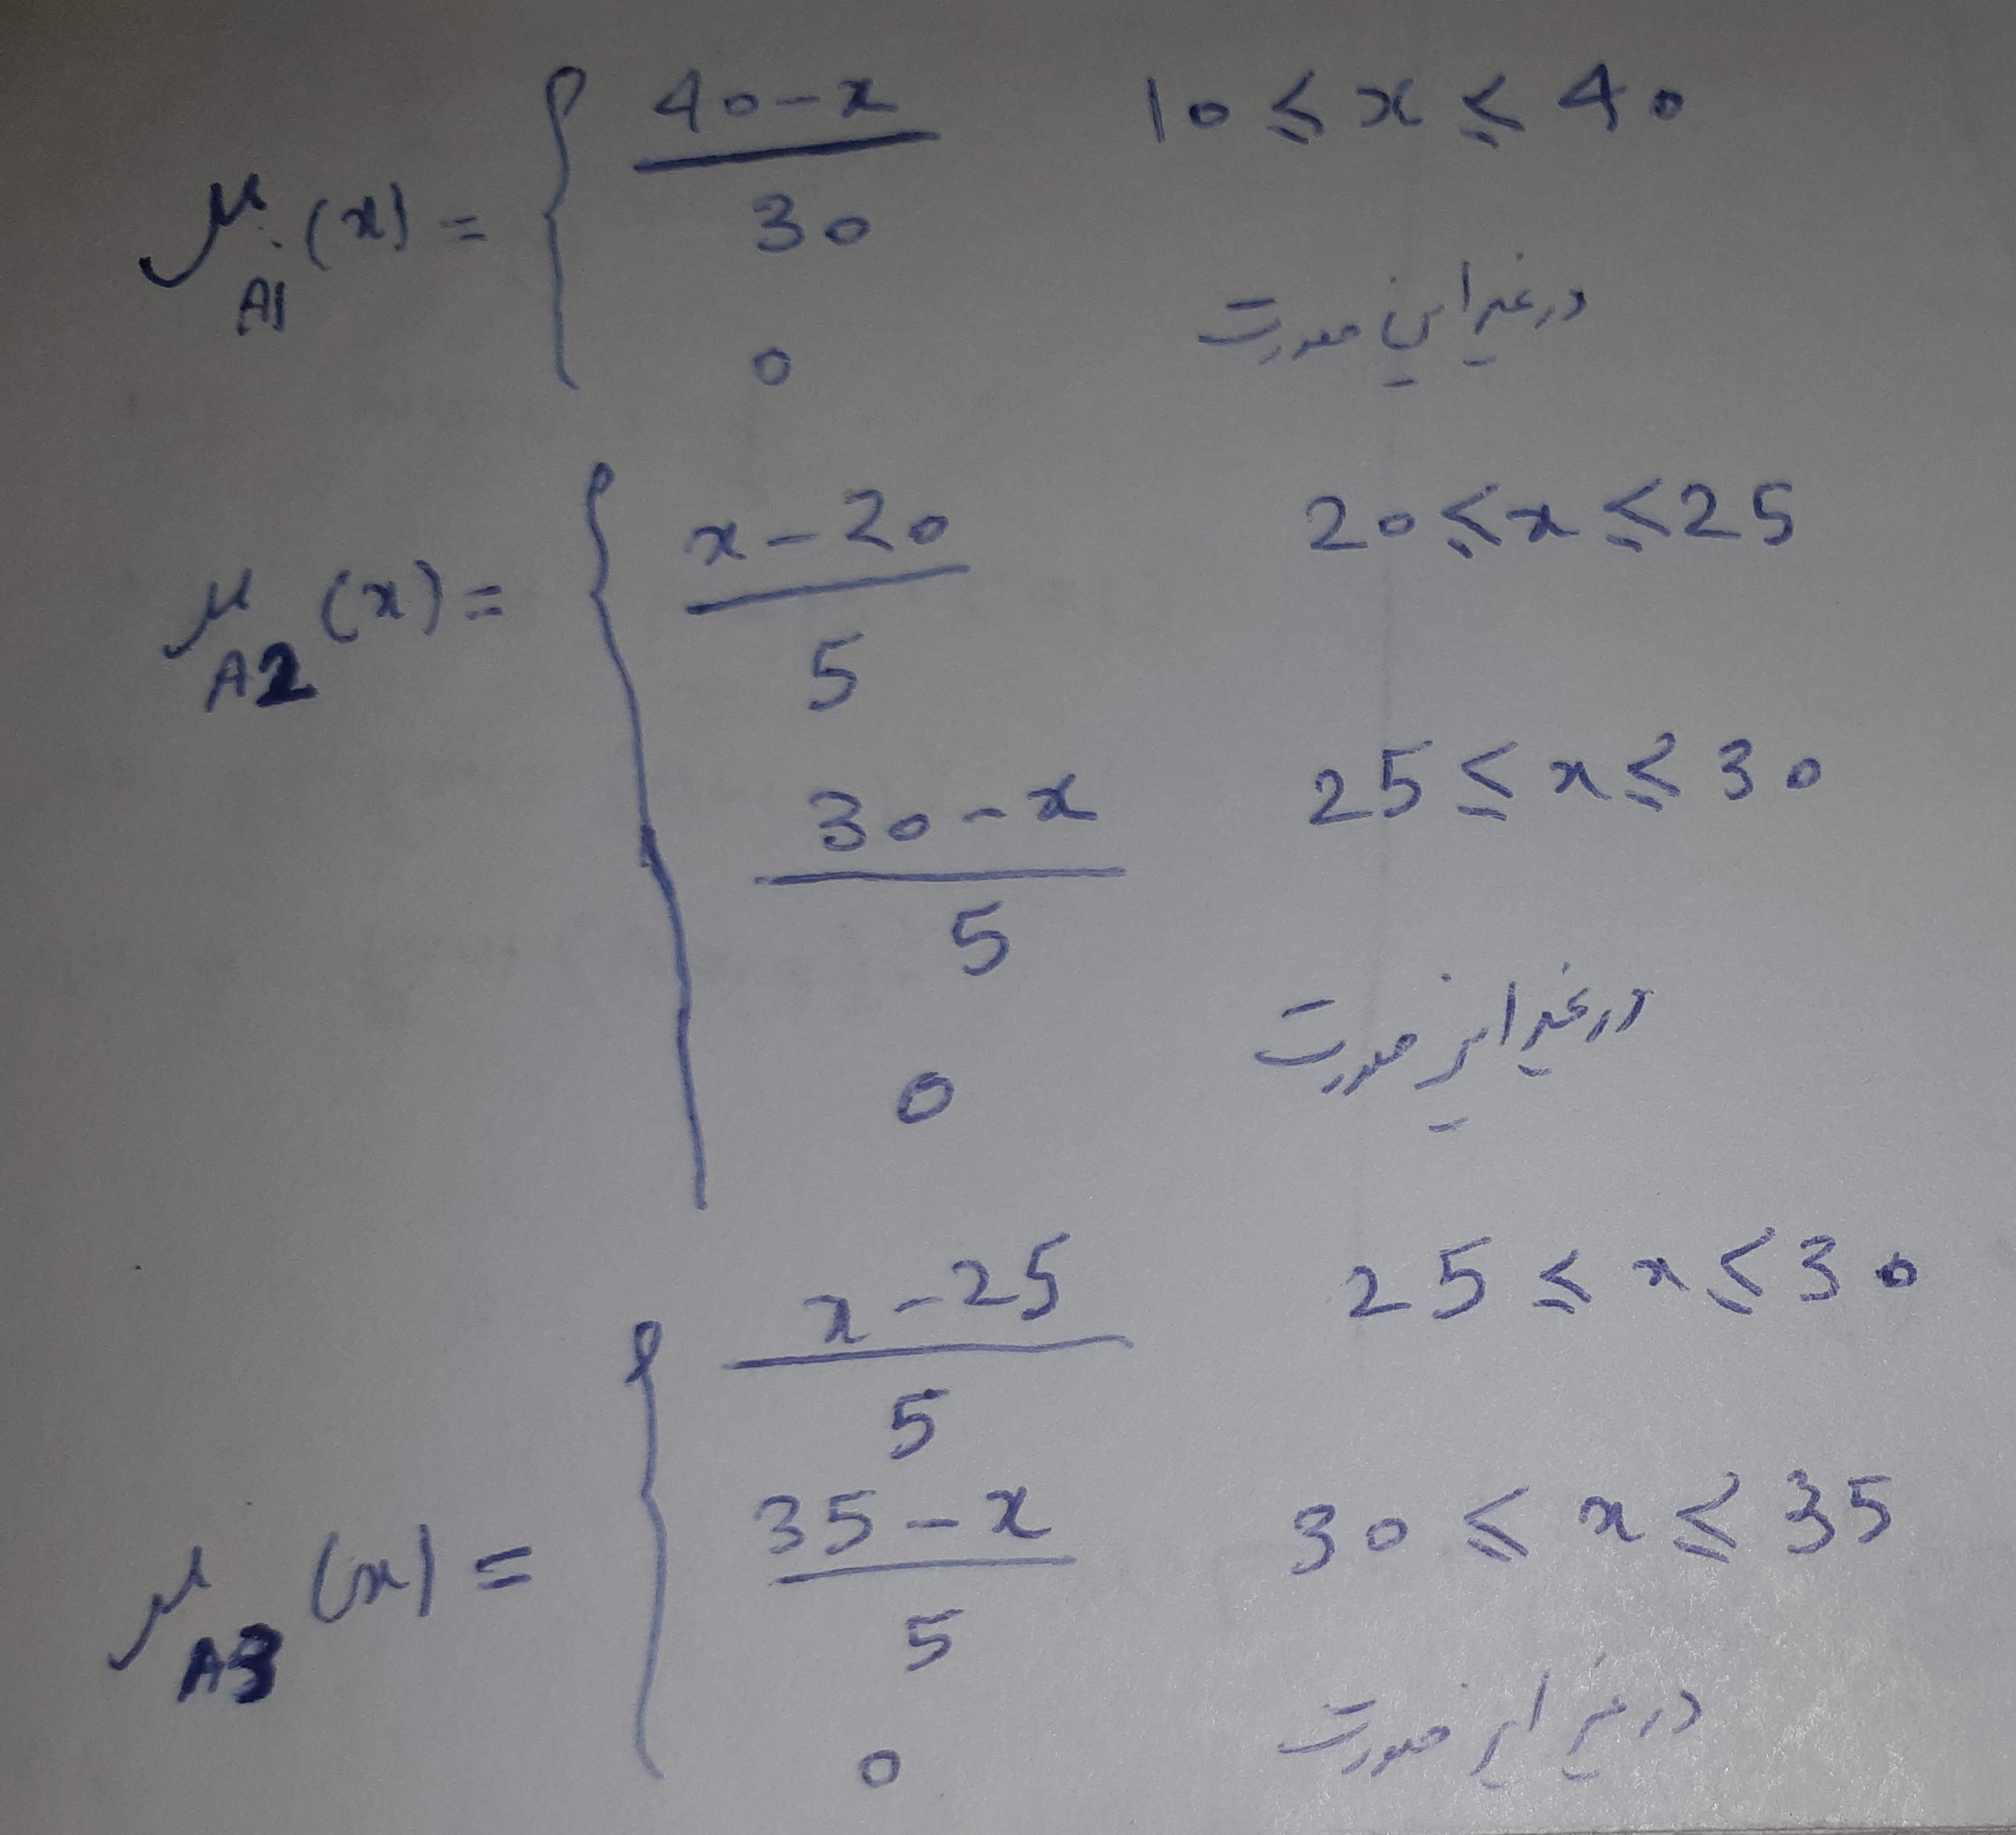 μA1(x) = { (40-x)/30    10 ≤ x ≤ 40
0    در غیر این صورت
μA2(x) = { (x-20)/5    20 ≤ x ≤ 25
(30-x)/5    25 ≤ x ≤ 30
0    در غیر این صورت
μA3(x) = { (x-25)/5    25 ≤ x ≤ 30
(35-x)/5    30 ≤ x ≤ 35
0    در غیر این صورت